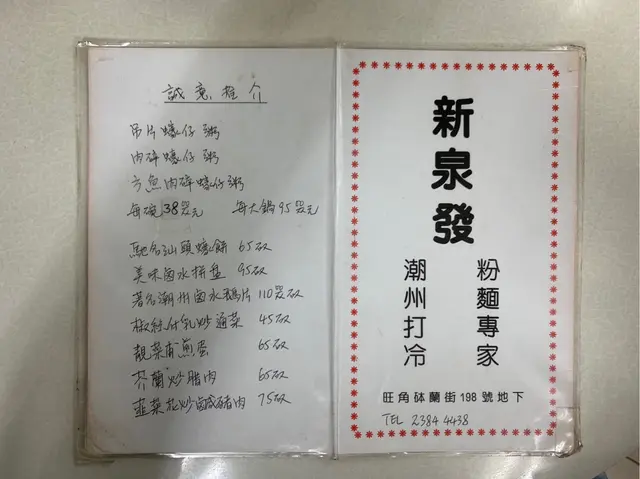 誠意推介
吊片蠔仔粥
肉碎蠔仔粥
方魚肉碎蠔仔粥
每碗38元 每大鍋95元
馳名汕頭蠔餅 65
美味卤水拼盘 95
著名潮州卤水鵝片 110
椒絲付乳炒通菜 45
靚菜甫煎蛋 65
芥蘭炒腊肉 65
韮菜花炒鹹豬肉 75
新泉發
粉麵專家
潮州打冷
旺角砵蘭街198號地下
TEL 2384 4438